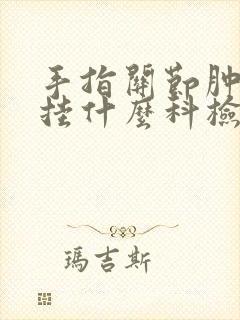 手指關節肿
挂什麼科檢
瑪吉斯